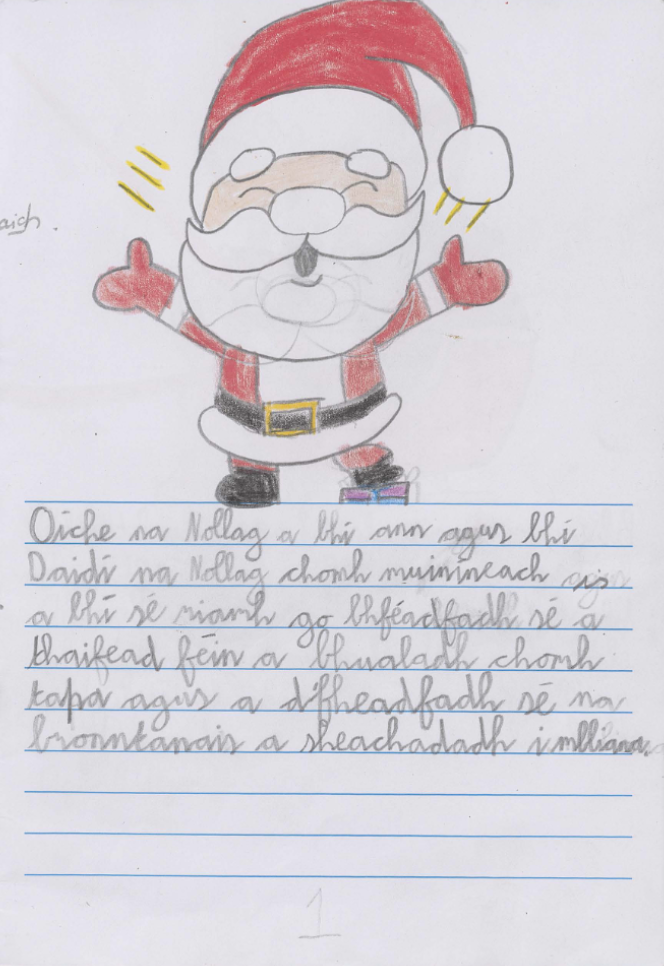 aigh.
Oiche na Nollag a bhí ann agus bhí
Daidí na Nollag chomh muiníneach is
a bhí sé riamh go bhféadfadh sé a
thaifead féin a bhualadh chomh
tapa agus a d'fheadfadh sé na
bronntanais a sheachadadh i mbliana.
1